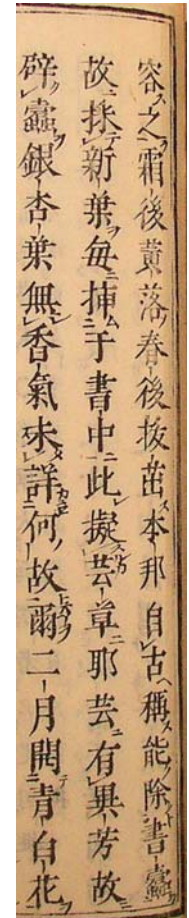 容之霜後黄落春後抜茁本邦自古稱能除書蠹
故採新葉毎挿于書中此擬芸草耶芸有異芳故
辟蠹銀杏葉無香氣未詳何故爾二月開青白花